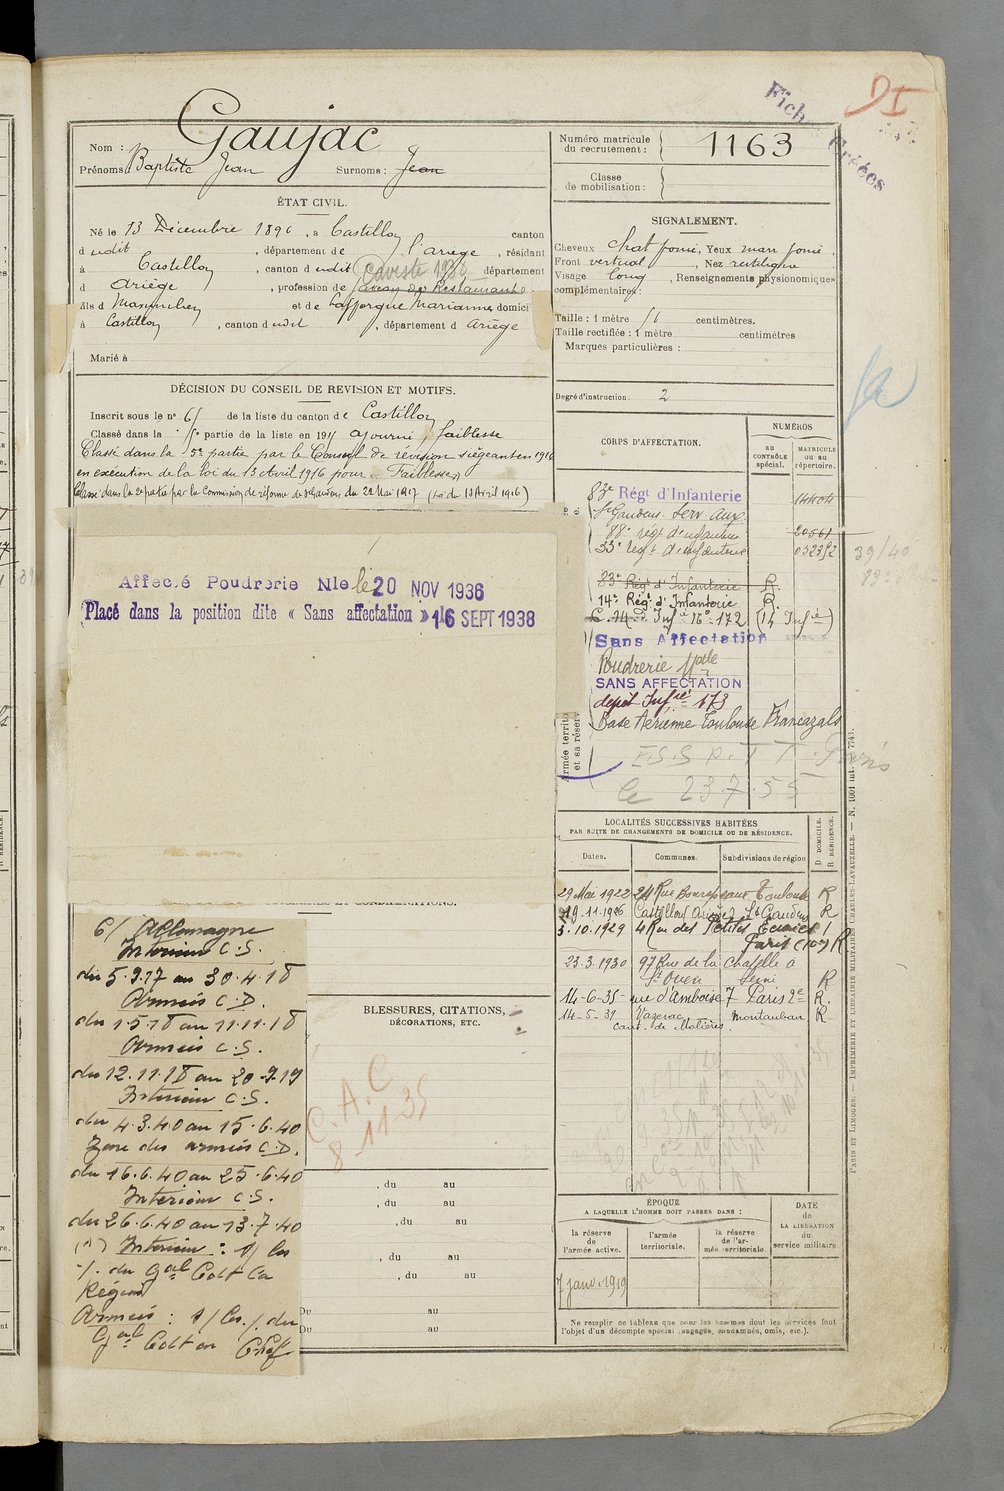 Fiches Créées
Nom : Gaujac
Prénoms : Baptiste Jean Surnoms : Jean
Numéro matricule du recrutement : 1163
Classe de mobilisation :
ÉTAT CIVIL.
Né le 13 Décembre 1896, à Castillon canton
dudit, département de l'ariège, résidant
à Castillon, canton dudit département
d ariège, profession de garçon de Restaurant
fils d Maximilien et de Lafforgue Marianne, domicilié
à Castillon, canton dudit, département d Ariège
Marié à
SIGNALEMENT.
Cheveux chat foncé, Yeux marr foncé,
Front vertical, Nez rectiligne
Visage long, Renseignements physionomiques
complémentaires :
Taille : 1 mètre 56 centimètres.
Taille rectifiée : 1 mètre centimètres
Marques particulières :
Degré d'instruction. 2
DÉCISION DU CONSEIL DE REVISION ET MOTIFS.
Inscrit sous le nº 65 de la liste du canton de Castillon
Classé dans la 5e partie de la liste en 1915 ajourné, faiblesse
Classé dans la 5e partie par le Conseil de révision siégeant en 1916
en exécution de la loi du 13 Avril 1916 pour "Faiblesse"
Classé dans la 2e partie par la Commission de réforme de St Gaudens du 22 Mai 1917 (Loi du 13 Avril 1916)
Affecté Poudrerie Nle le 20 NOV 1936
Placé dans la position dite « Sans affectation » 16 SEPT 1938
CORPS D'AFFECTATION.
NUMÉROS
AU CONTRÔLE spécial.
MATRICULE OU AU répertoire.
83e Régt d'Infanterie 14404
St Gaudens Serv. Aux.
88e régt d'infanterie 20561
33e régt d'infanterie
83e Régt d'Infanterie R.
14e Régt d'Infanterie R.
Sans Affectation
Poudrerie Nale
SANS AFFECTATION
dépôt Infie 173
Base Aérienne Toulouse Francazals
E.S.S P.T T Paris
le 23.7.55
Armée territo
et sa réserv
LOCALITÉS SUCCESSIVES HABITÉES
PAR SUITE DE CHANGEMENTS DE DOMICILE OU DE RÉSIDENCE.
Dates. Communes. Subdivisions de région
D DOMICILE. R RÉSIDENCE.
29 Mai 1922 24 Rue Bonrepeaux Toulouse R
19.11.1926 Castillon Ariège St Gaudens R
3.10.1929 4 Rue des Petites Ecuries
Paris (10e) R
23.3.1930 97 Rue de la Chapelle à
St Ouen Seine R
14-6-35 rue d'Amboise 7 Paris 2e R.
14-5-39 Vazerac Montauban R
cant. de Molières
6/ Allemagne
Intérieur C.S.
du 5.9.17 au 30.4.18
Armées C.D.
du 1.5.18 au 11.11.18
Armées C.S.
du 12.11.18 au 20.9.19
Intérieur C.S.
du 4.3.40 au 15.6.40
Zone des armées C.D.
du 16.6.40 au 25.6.40
Intérieur C.S.
du 26.6.40 au 13.7.40
(1) Intérieur : s/ les
/. du Gal Cdt la
Région
Armées : s/ les /. du
Gal Cdt en Chef
BLESSURES, CITATIONS,
DÉCORATIONS, ETC.
C.A.C
8-11-35
, du au
, du au
, du au
, du au
, du au
Du au
Du au
ÉPOQUE
A LAQUELLE L'HOMME DOIT PASSER DANS :
la réserve de l'armée active.
l'armée territoriale.
la réserve de l'armée territoriale.
DATE de LA LIBÉRATION du service militaire
Ne remplir ce tableau que pour les hommes dont les services font
l'objet d'un décompte spécial (engagés, condamnés, omis, etc.).
PARIS ET LIMOGES. — IMPRIMERIE ET LIBRAIRIE MILITAIRES CHARLES-LAVAUZELLE. — N. 1001 int.